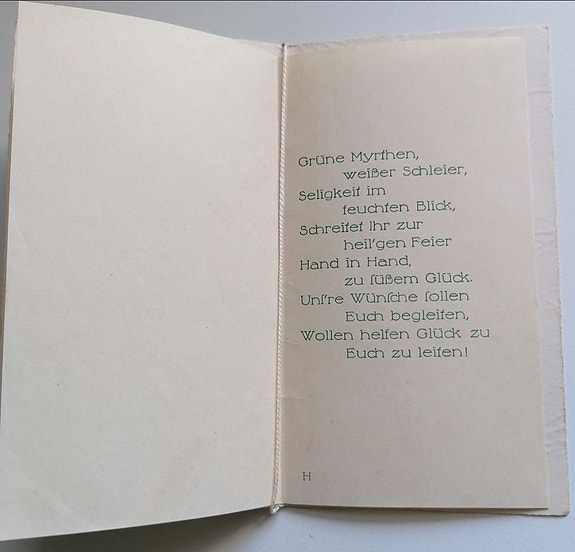 Grüne Myrthen,
weißer Schleier,
Seligkeit im
feuchten Blick,
Schreitet Ihr zur
heil'gen Feier
Hand in Hand,
zu ſüßem Glück.
Unſ're Wünſche ſollen
Euch begleiten,
Wollen helfen Glück zu
Euch zu leiten!
H